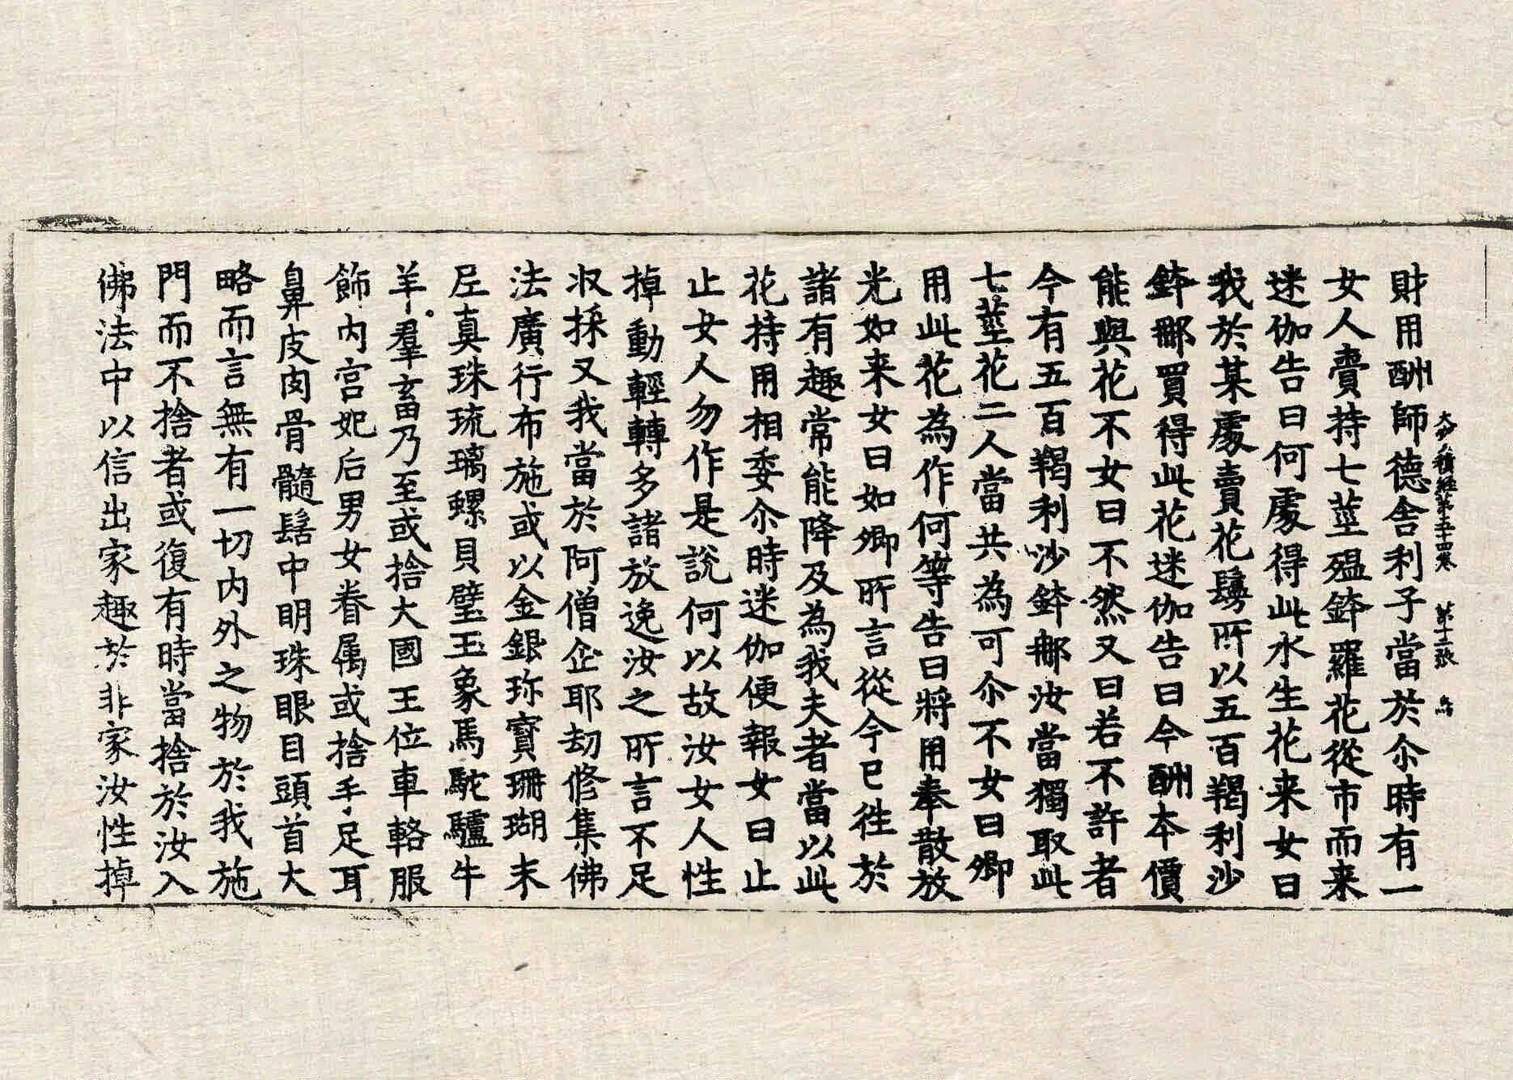 大寶積經第五十四卷 第十二張
財用酬師德舍利子當於尒時有一
女人賣持七莖殟鉢羅花從市而来
迷伽告曰何處得此水生花来女曰
我於某處賣花鬘所以五百羯利沙
鉢那買得此花迷伽告曰今酬本價
能與花不女曰不然又曰若不許者
今有五百羯利沙鉢那汝當獨取此
七莖花二人當共為可尒不女曰卿
用此花為作何等告曰將用奉散放
光如来女曰如卿所言從今已往於
諸有趣常能降及為我夫者當以此
花持用相委尒時迷伽便報女曰止
止女人勿作是說何以故汝女人性
掉動輕轉多諸放逸汝之所言不足
収採又我當於阿僧企耶劫修集佛
法廣行布施或以金銀珎寳珊瑚末
尼真珠琉璃螺貝璧玉象馬駝驢牛
羊羣畜乃至或捨大國王位車輅服
飾内宫妃后男女眷属或捨手足耳
鼻皮肉骨髓髻中明珠眼目頭首大
略而言無有一切内外之物於我施
門而不捨者或復有時當捨於汝入
佛法中以信出家趣於非家汝性掉